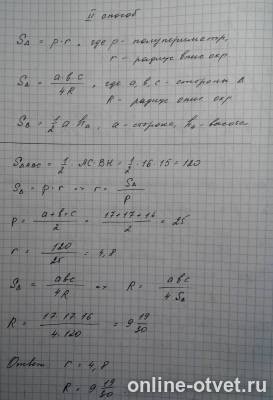 II способ
S∆ = p · r, где p - полупериметр,
r - радиус впис окр.
S∆ = a·b·c / 4R, где a, b, c - стороны ∆
R - радиус опис окр
S∆ = 1/2 a hₐ, a - сторона, hₐ - высота
S∆ABC = 1/2 · AC · BH = 1/2 · 16 · 15 = 120
S∆ = p · r => r = S∆ / p
p = a+b+c / 2 = 17+17+16 / 2 = 25
r = 120 / 25 = 4,8
S∆ = abc / 4R => R = abc / 4·S∆
R = 17·17·16 / 4·120 = 9 19/30
Ответ r = 4,8
R = 9 19/30
online-otvet.ru